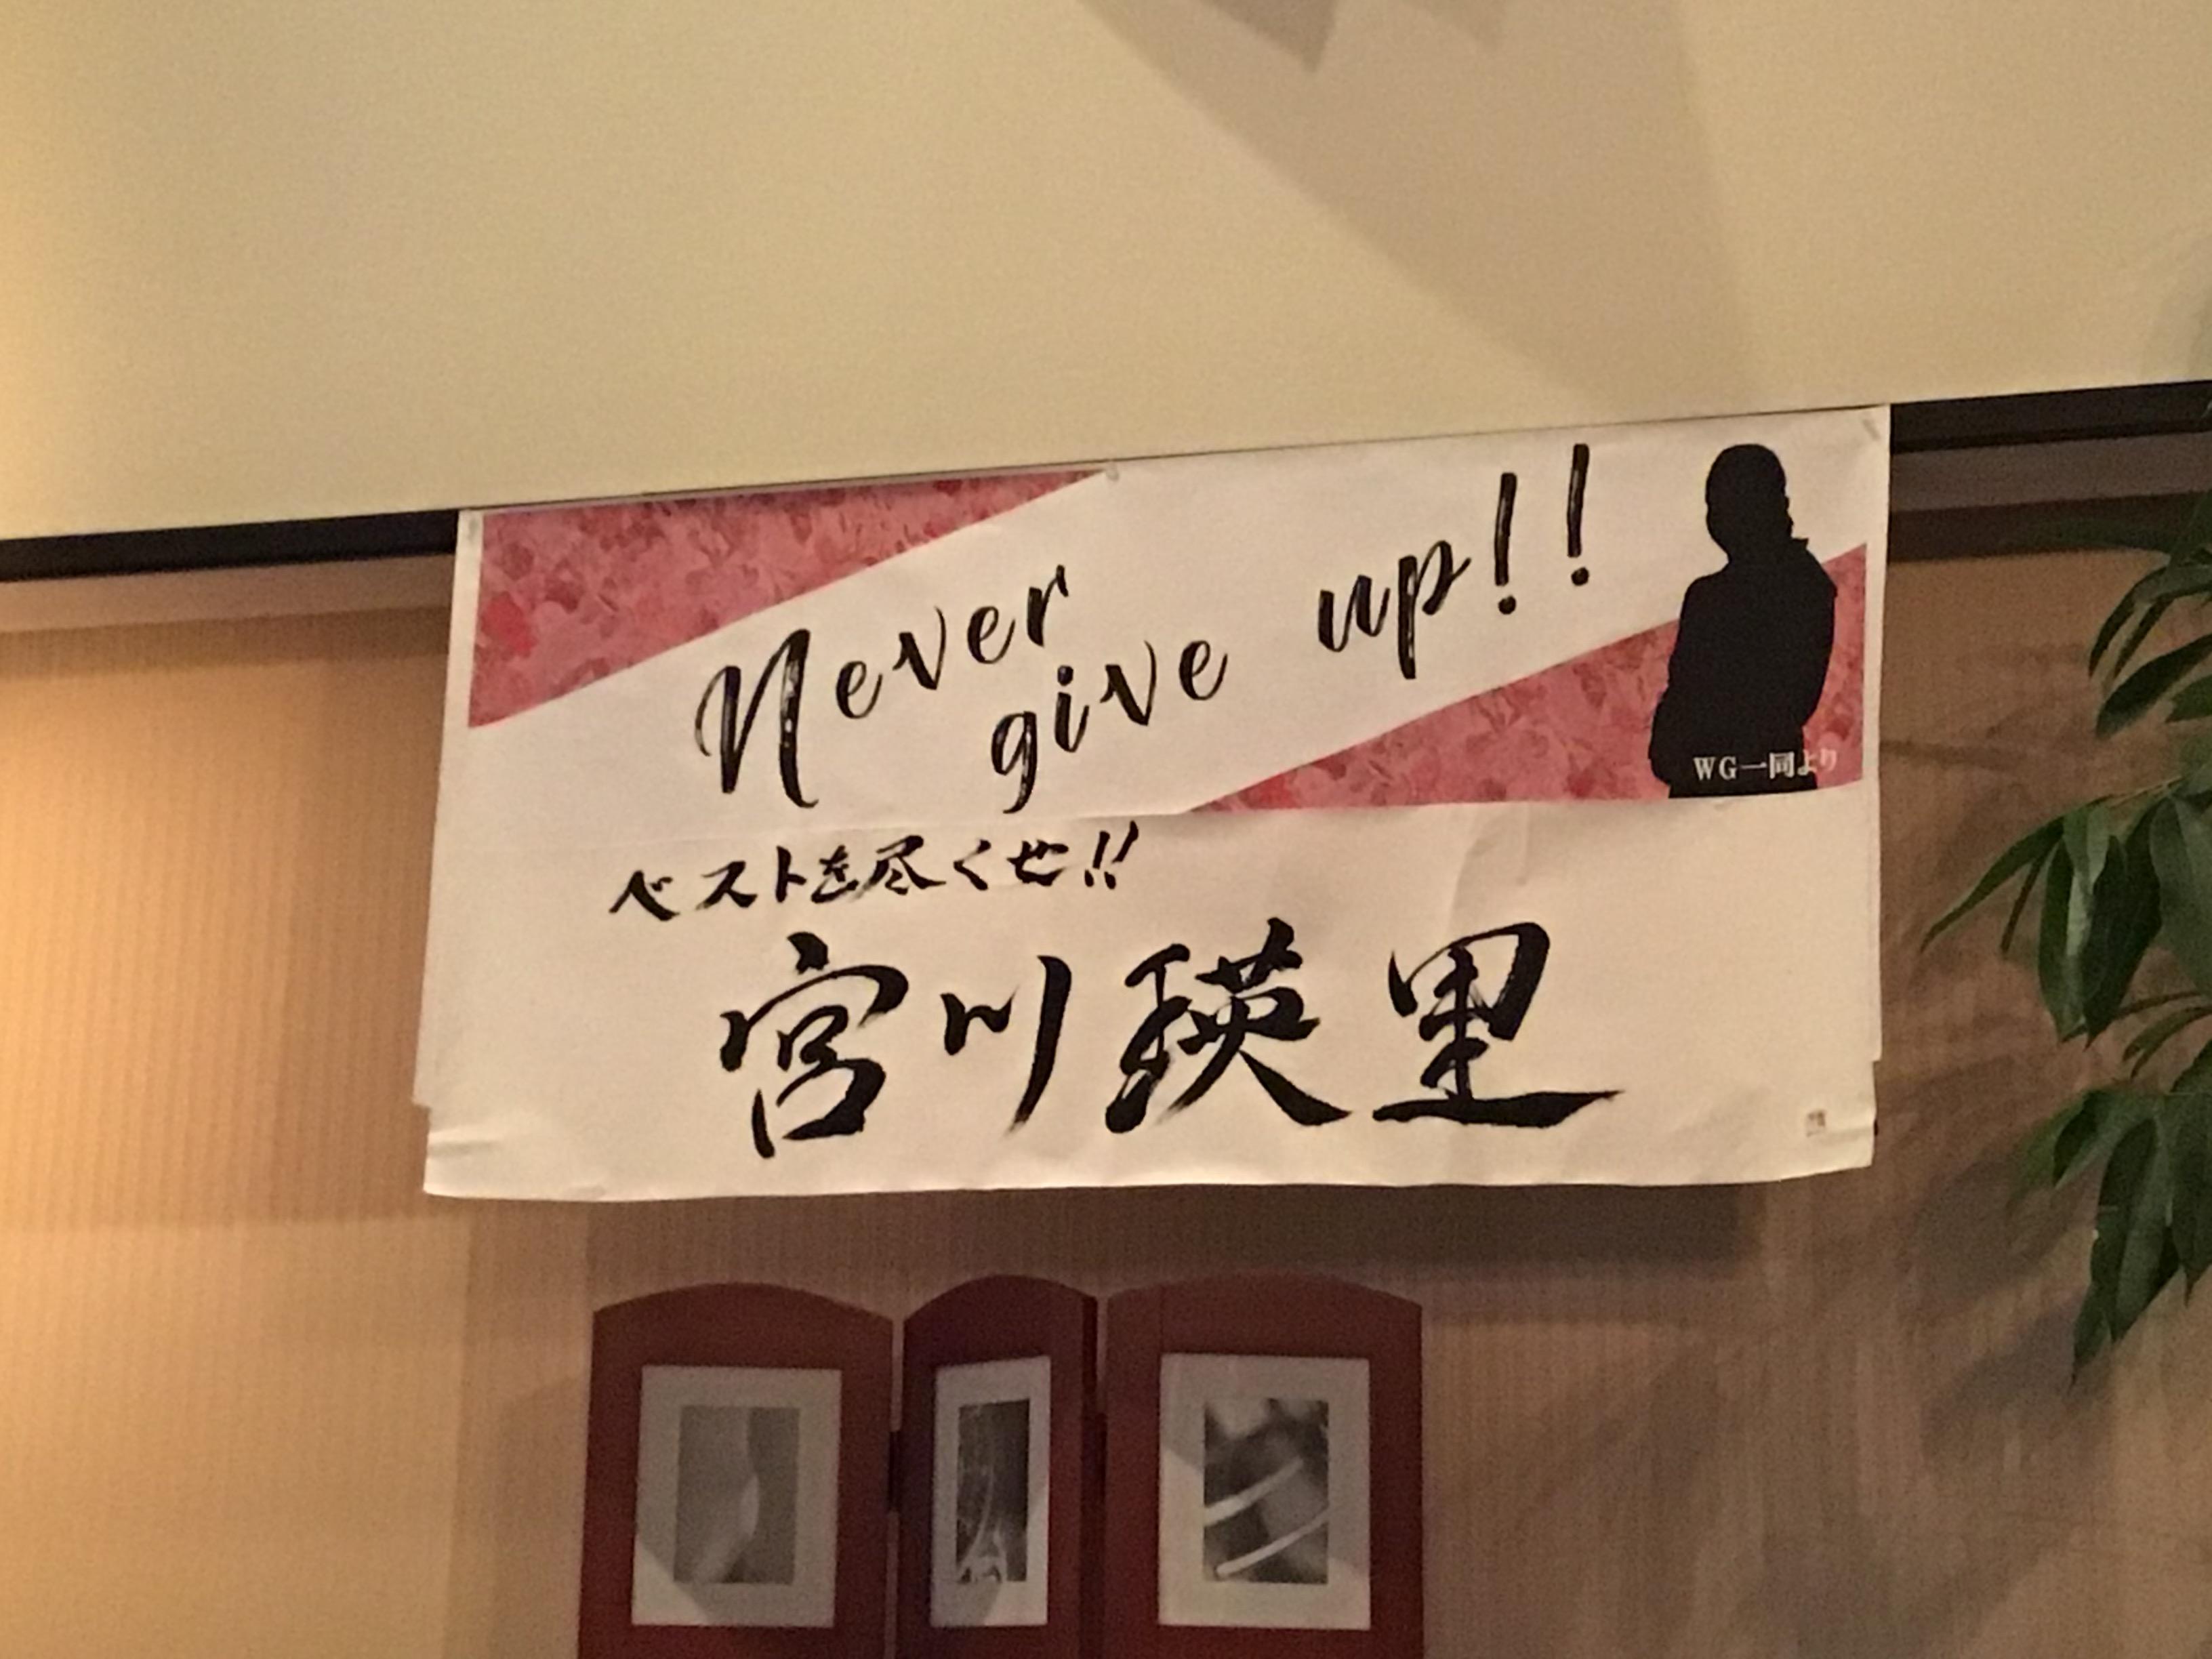 Never give up!!
WG一同より
ベストを尽くせ!!
宮川瑛里